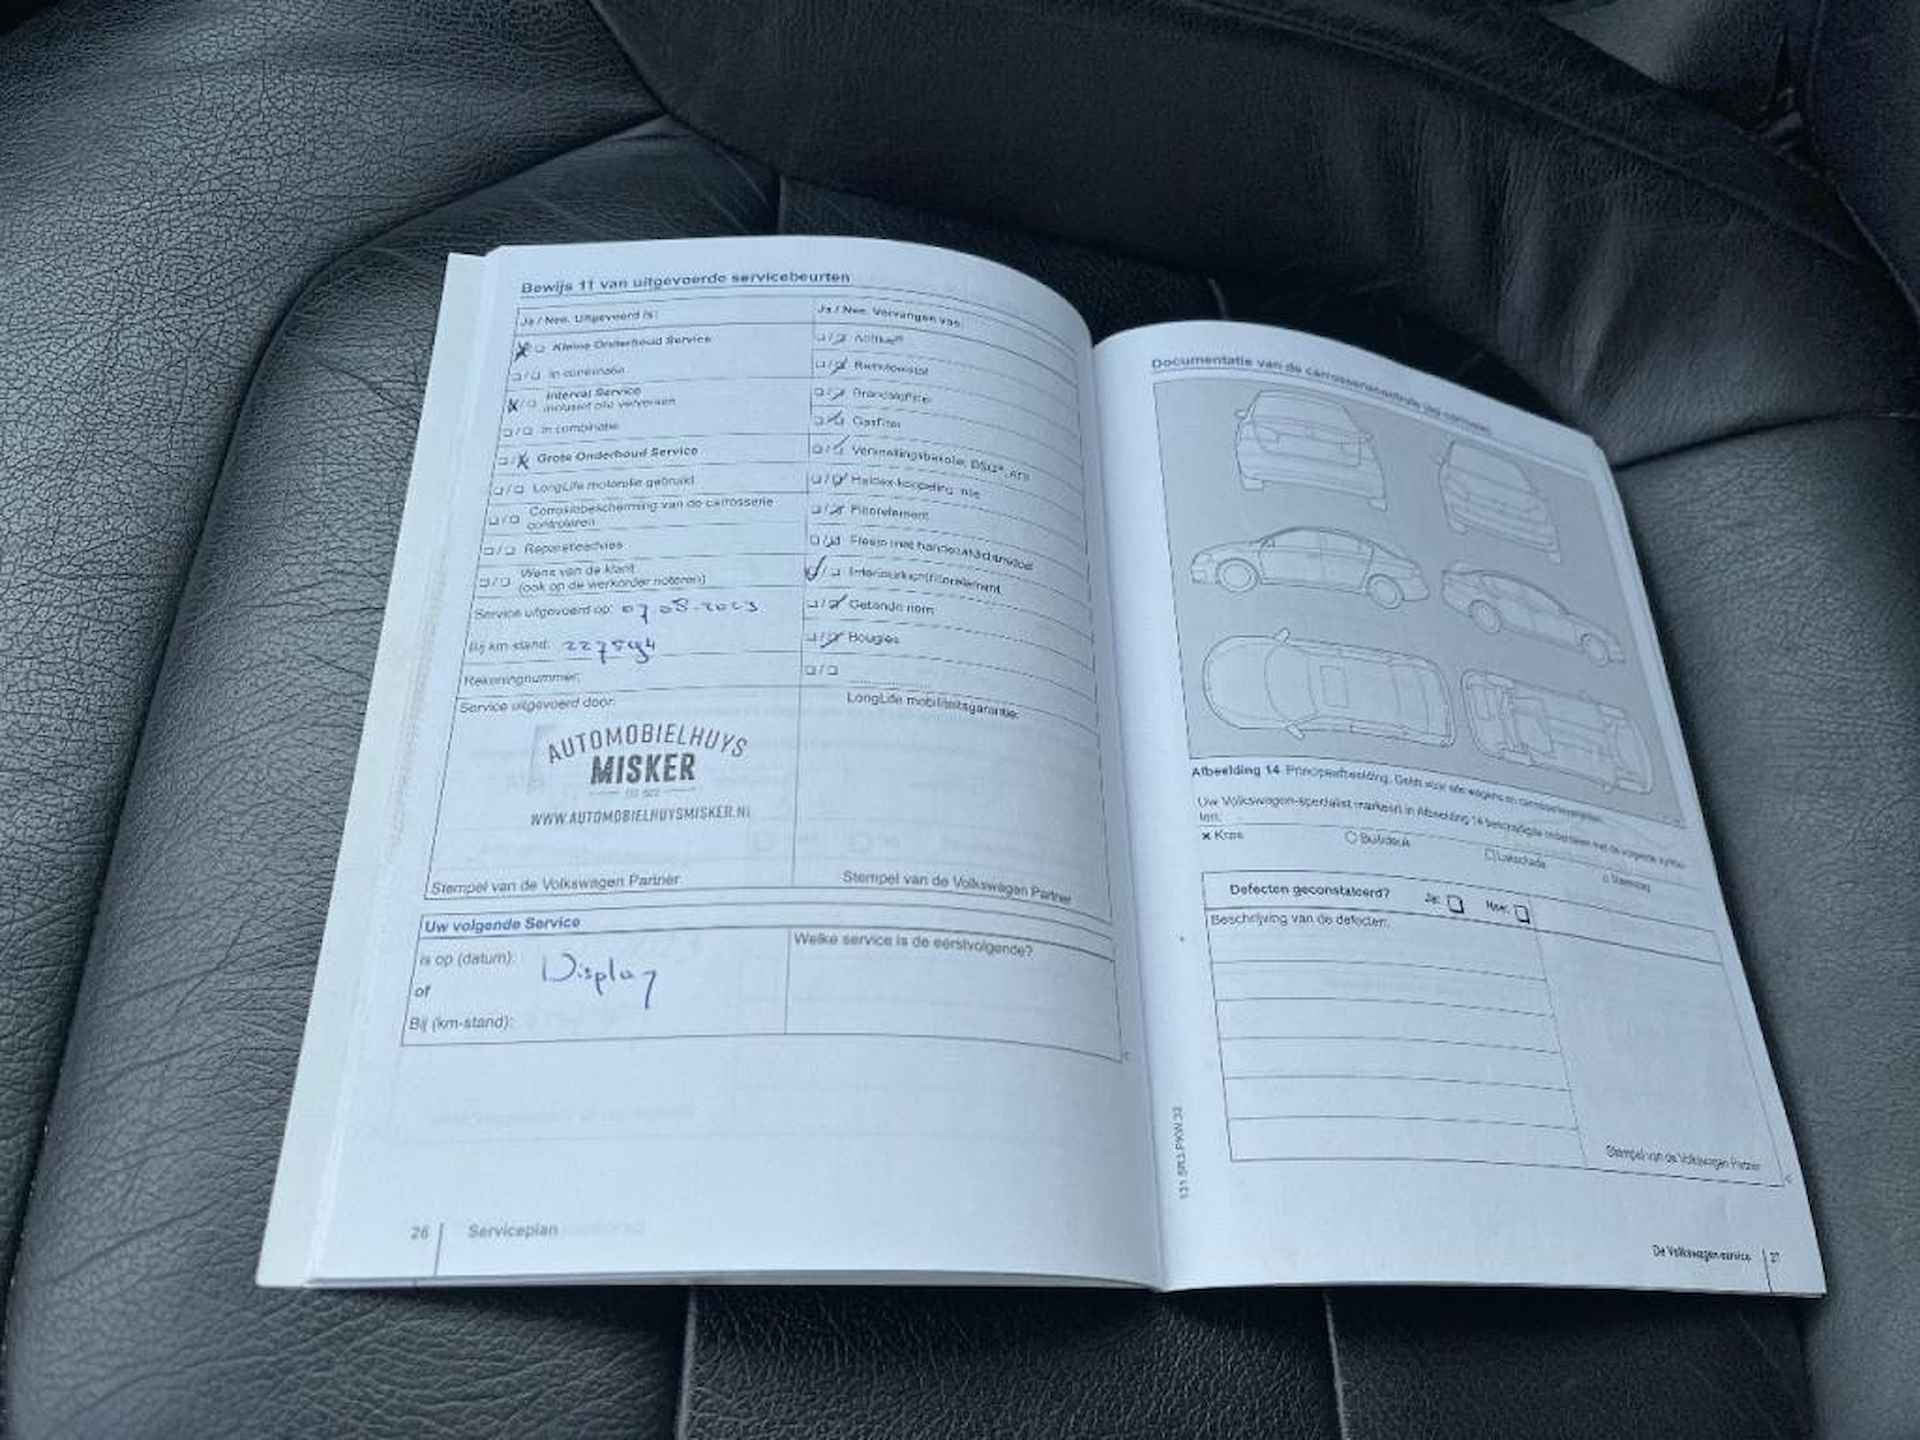 Bewijs 11 van uitgevoerde servicebeurten
Ja / Nee. Uitgevoerd is:
Kleine Onderhoud Service
In combinatie
Interval Service
inclusief olie verversen
In combinatie
Grote Onderhoud Service
LongLife motorolie gebruikt
Corrosiebescherming van de carrosserie
controleren
Reparatieadvies
Wens van de klant
(ook op de werkorder noteren)
Service uitgevoerd op: 07 08-2023
Bij km-stand:
Rekeningnummer:
Service uitgevoerd door:
AUTOMOBIELHUYS
MISKER
WWW.AUTOMOBIELHUYSMISKER.NL
Stempel van de Volkswagen Partner
Ja / Nee. Vervangen van:
Brandstoffilter
Gasfilter
Versnellingsbakolie, DSG®, ATF
Haldex-koppeling olie
Filterelement
Interieurlucht/filterelement
Getande riem
Bougies
LongLife mobiliteitsgarantie:
Stempel van de Volkswagen Partner
Uw volgende Service
is op (datum): Display
of
Bij (km-stand):
Welke service is de eerstvolgende?
26 Serviceplan
Documentatie van de carrosseriecontrole
Afbeelding 14 Principeafbeelding. Geldt voor alle wagens en carrosserievormen.
Uw Volkswagen-specialist markeert in Afbeelding 14 beschadigde onderdelen met de volgende
× Kras
Buil/deuk
Lakschade
Steenslag
Defecten geconstateerd? Ja: Nee:
Beschrijving van de defecten:
Stempel van de Volkswagen Partner
131.5R3.PKW.32
De Volkswagen-service 27